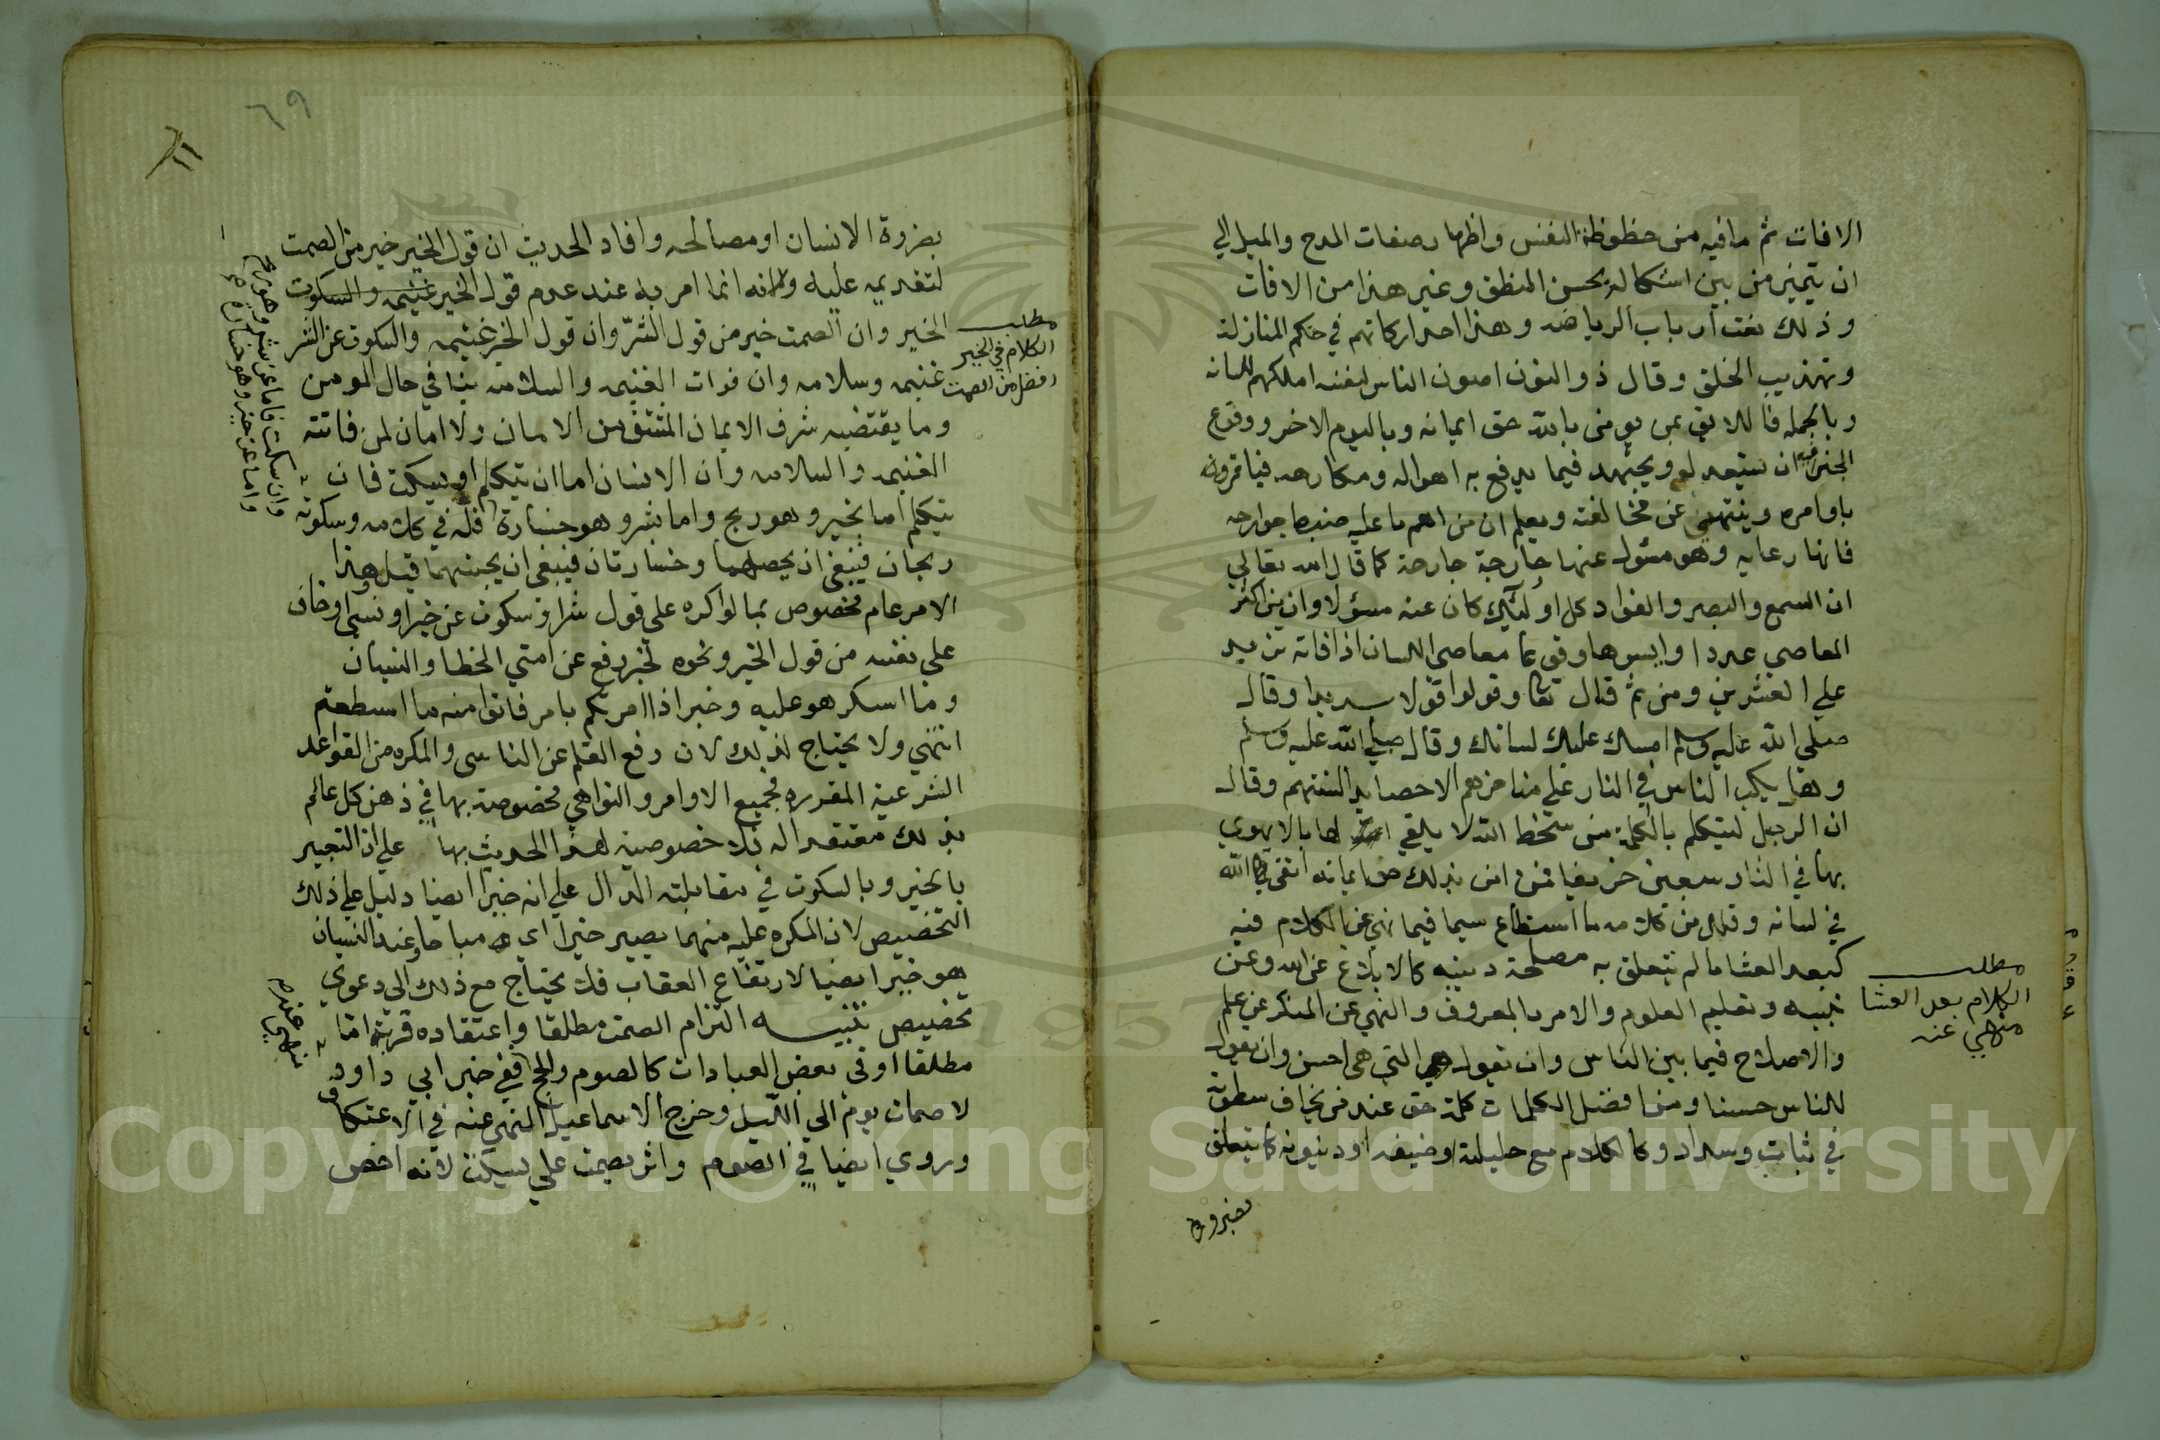 الافات ثم ما فيه من حظوظ النفس واظهار صفات المدح والميل الي
ان يتميز من بين اشكاله بحسن المنطق وغير هذا من الافات
وذلك نعت ارباب الرياضه وهذا احد اركانهم في حكم المنازلة
وتهذيب الخلق وقال ذو النون اصون الناس لنفسه املكهم للسانه
وبالجمله فاللايق بمن يومن بالله حق ايمانه وباليوم الاخر ووقوع
الجزا فيه ان يستعد له ويجتهد فيما يدفع به اهواله ومكارهه فياتمر
باوامره وينتهي عن مخالفته ويعلم ان من اهم ما عليه ضبط جوارحه
فانها رعايه وهو مسئول عنها جارحة جارحة كما قال الله تعالي
ان السمع والبصر والفواد كل اولئك كان عنه مسؤلا وان من اكثر
المعاصي عددا وايسرها وقوعا معاصي اللسان اذ افاته تزيد
علي العشرين ومن ثم قال تعا وقولوا قولا سديدا وقال
صلي الله عليه وسلم امسك عليك لسانك وقال صلي الله عليه وسلم
وهل يكب الناس في النار علي مناخرهم الا حصايد السنتهم وقال
ان الرجل ليتكلم بالكلمة من سخط الله لا يلقي لها بالا يهوي
بها في النار سبعين خريفا فمن امن بذلك حق ايمانه اتقي الله
في لسانه وقلل من كلامه ما استطاع سيما فيما نهي عن الكلام فيه
كبعد العشا ما لم يتعلق به مصلحة دينيه كالابلاغ عن الله وعن
نبيه وتعليم العلوم والامر بالمعروف والنهي عن المنكر عن علم
والاصلاح فيما بين الناس وان تقول التي هي احسن وان يقول
للناس حسنا ومن افضل الكلمات كلمة حق عند من يخاف سطوته
في ثبات وسداد وكالكلام مع حليلة او ضيف او دنيويه كما يتعلق
مطلب
الكلام بعد العشا
منهي عنه
بضروة
٦٩
بضروة الانسان او مصالحه وافاد الحديث ان قول الخير خير من الصمت
لتقديمه عليه ولانه انما امر به عند عدم قول الخير غنيمه والسكوت
الخير وان الصمت خير من قول الشر وان قول الخير غنيمه والسكوت عن الشر
غنيمه وسلامه وان فوات الغنيمه والسلامه ينافي حال المومن
وما يقتضيه شرف الايمان المشتق من الامان ولا امان لمن فاتته
الغنيمه والسلامه وان الانسان اما ان يتكلم او يسكت فان
يتكلم اما بخير وهو ربح واما بشر وهو خسارة فله في كلامه وسكوته
ربحان فينبغي ان يحصلهما وخسارتان فينبغي ان يجتنبهما قيل وهذا
الامر عام مخصوص بما لو اكره علي قول شر او سكوت عن خير او نسي او خاف
علي نفسه من قول الخير ونحوه لخبر رفع عن امتي الخطا والنسيان
وما استكرهو عليه وخبر اذا امرتكم بامر فاتوا منه ما استطعتم
انتهي ولا يحتاج لذلك لان رفع القلم عن الناسي والمكره من القواعد
الشرعية المقرره فجميع الاوامر والنواهي مخصوصة بها في ذهن كل عالم
بذلك معتقد له فلا خصوصية لهذا الحديث بها علي ان التعبير
بالخير وبالسكوت في مقابلته الدال علي انه خير ايضا دليل علي ذلك
التخصيص لان المكره عليه منهما يصير خيرا اي مباحا وعند النسيان
هو خير ايضا لارتفاع العقاب فلا يحتاج مع ذلك الي دعوي
تخصيص تنبيه التزام الصمت مطلقا واعتقاده قربة اما
مطلقا او في بعض العبادات كالصوم والحج ففي خبر ابي داود
لا صمات يوم الي الليل وخرج الاسماعيلي النهي عنه في الاعتكاف
وروي ايضا في الصوم واثر يصمت علي يسكت لانه اخص
مطلب
الكلام في الخير
افضل من الصمت
وان سكت فاما عن شر وهو ربح
واما عن خير وهو خسارة
منهي عنه